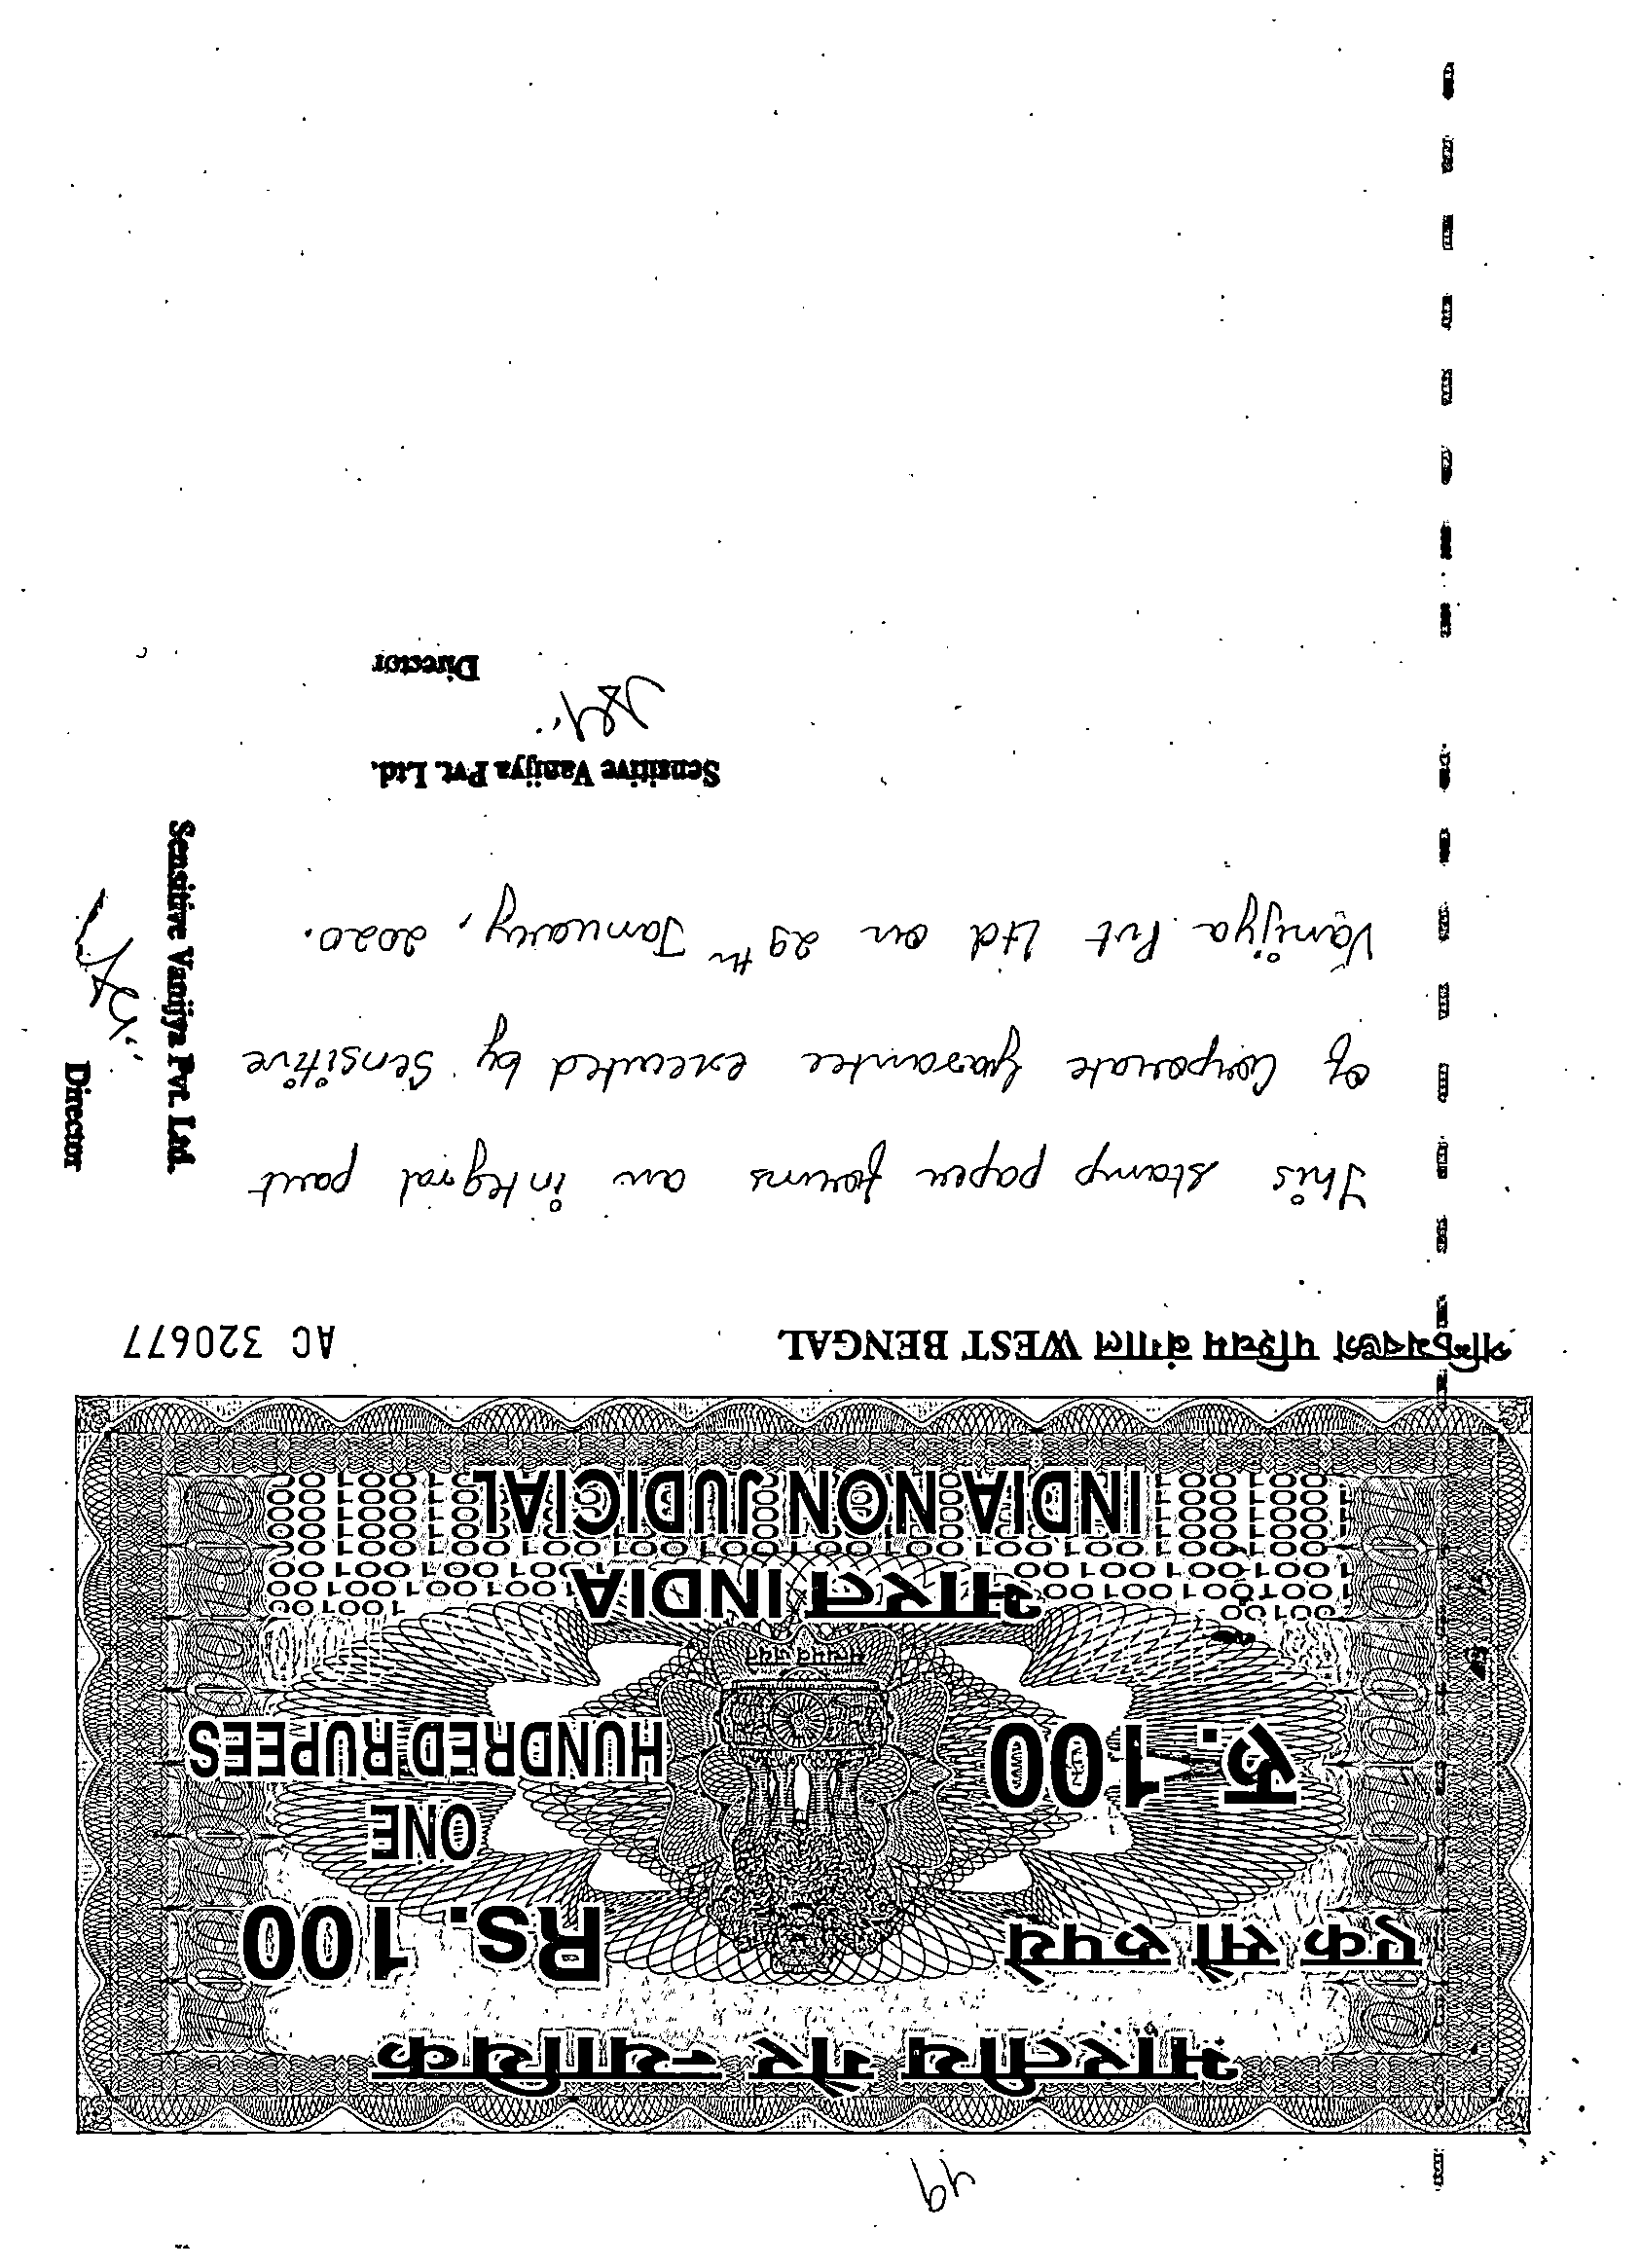 49
भारतीय गैर न्यायिक
एक सौ रुपये
Rs. 100
रु. 100
ONE
HUNDRED RUPEES
सत्यमेव जयते
भारत INDIA
INDIA NON JUDICIAL
পশ্চিমবঙ্গ पश्चिम बंगाल WEST BENGAL
AC 320677
This stamp paper forms an integral part
of Corporate guarantee executed by Sensitive
Vanijya Pvt Ltd on 29th January, 2020.
Sensitive Vanijya Pvt. Ltd.
Director
Sensitive Vanijya Pvt. Ltd.
Director